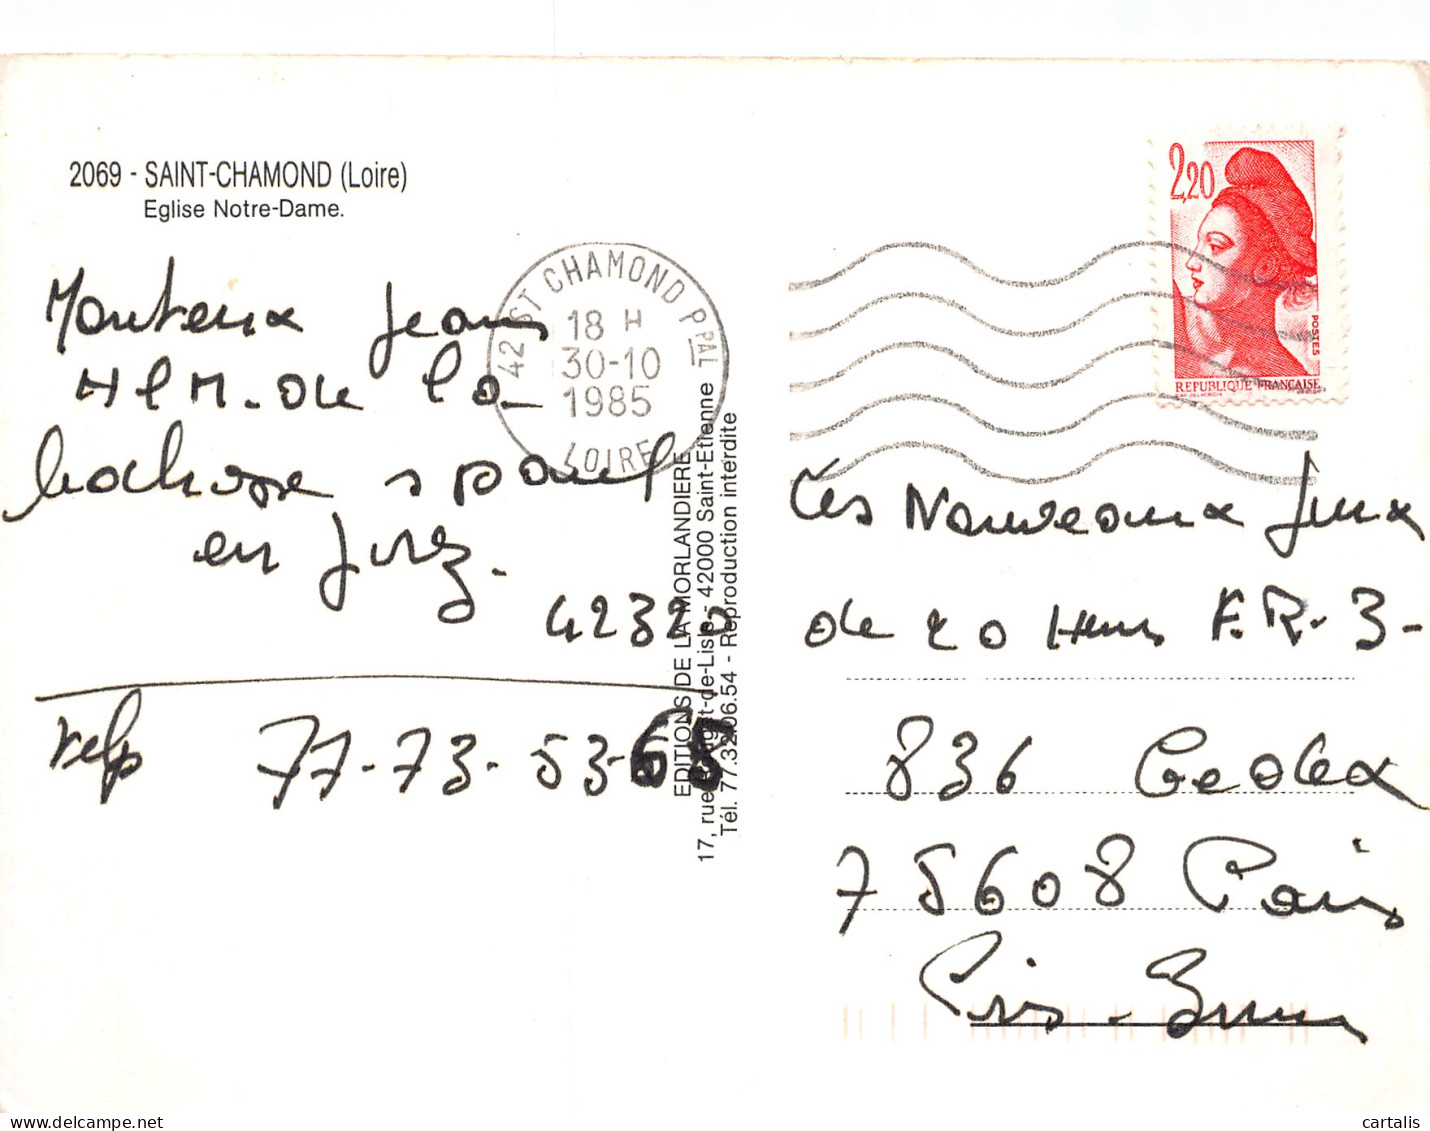 2069 - SAINT-CHAMOND (Loire)
Eglise Notre-Dame.
Jean
HLM. de la
St paul
en Jarez.
42320
Telp 77-73-53-68
42 ST CHAMOND PPAL
18 H
30-10
1985
LOIRE
EDITIONS DE LA MORLANDIERE
17, rue Rouget-de-Lisle - 42000 Saint-Etienne
Tél. 77.32.06.54 - Reproduction interdite
2,20
POSTES
REPUBLIQUE FRANÇAISE
Les Nouveaux Jeux
de 20 Heures F.R.3-
836 Cedex
75608 Paris
cartalis